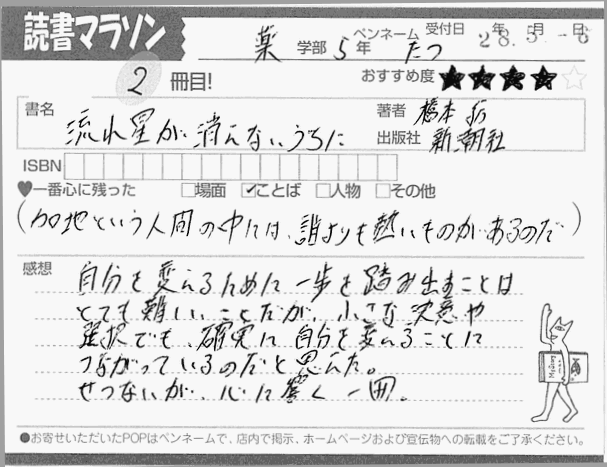 読書マラソン
薬 学部 5年 ペンネーム たつ 受付日 28年 5月 -6
2 冊目! おすすめ度 ★★★★☆
書名 流れ星が消えないうちに 著者 橋本 紡
出版社 新潮社
ISBN
♥一番心に残った □場面 ☑ことば □人物 □その他
(加地という人間の中には、誰よりも熱いものがあるのだ)
感想
自分を変えるために一歩を踏み出すことは
とても難しいことだが、小さな決意や
選択でも、確実に自分を変えることに
つながっているのだと思えた。
せつないが、心に響く一冊。
●お寄せいただいたPOPはペンネームで、店内で掲示、ホームページおよび宣伝物への転載をご了承ください。